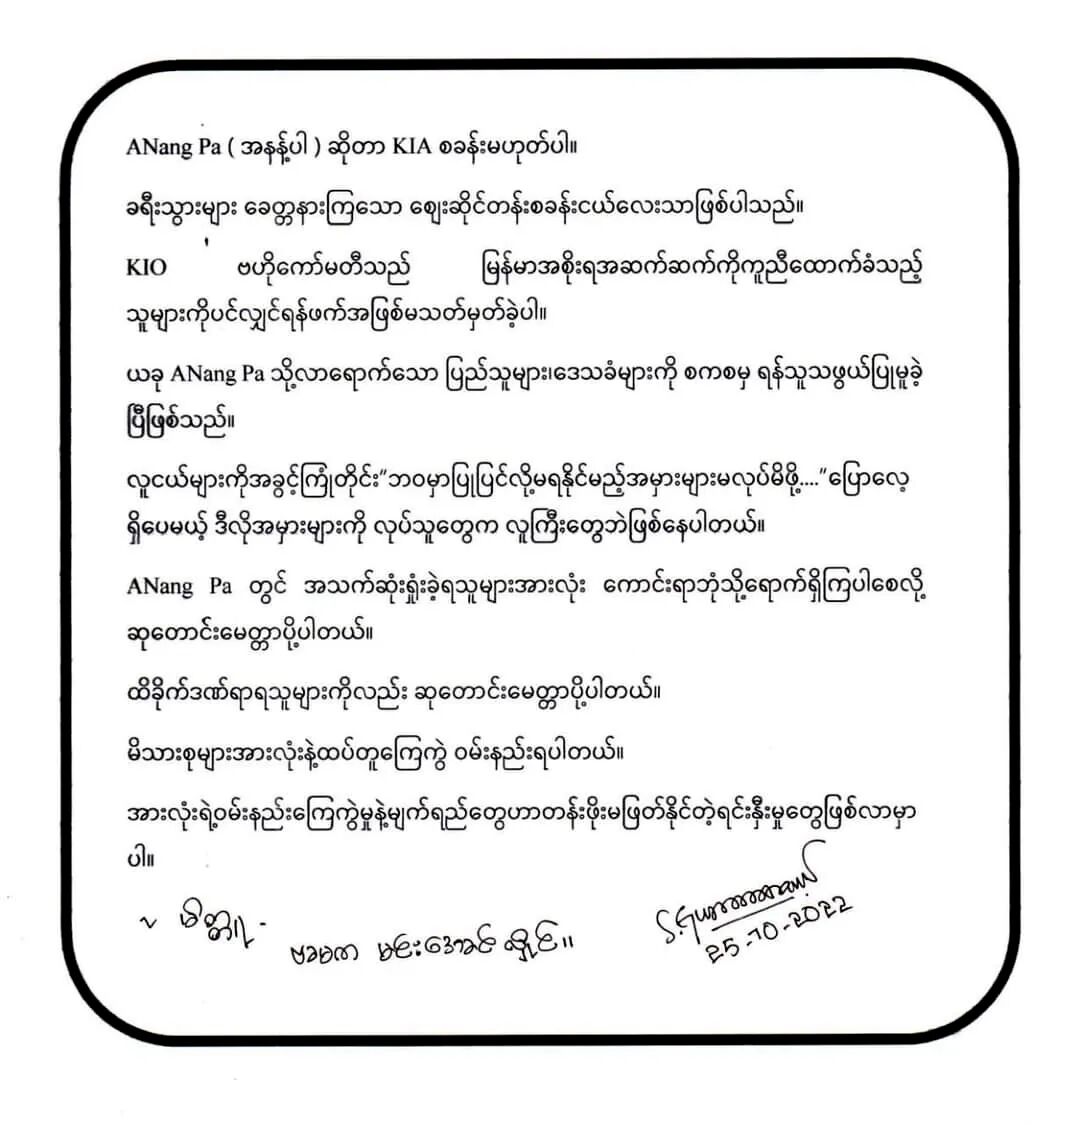 ANang Pa ( အနန့်ပါ ) ဆိုတာ KIA စခန်းမဟုတ်ပါ။
ခရီးသွားများ ခေတ္တနားကြသော ဈေးဆိုင်တန်းစခန်းငယ်လေးသာဖြစ်ပါသည်။
KIO ဗဟိုကော်မတီသည် မြန်မာအစိုးရအဆက်ဆက်ကိုကူညီထောက်ခံသည့်
သူများကိုပင်လျှင်ရန်ဖက်အဖြစ်မသတ်မှတ်ခဲ့ပါ။
ယခု ANang Pa သို့လာရောက်သော ပြည်သူများ၊ဒေသခံများကို စကစမှ ရန်သူသဖွယ်ပြုမူခဲ့
ပြီဖြစ်သည်။
လူငယ်များကိုအခွင့်ကြုံတိုင်း“ဘဝမှာပြုပြင်လို့မရနိုင်မည့်အမှားများမလုပ်မိဖို့....”ပြောလေ့
ရှိပေမယ့် ဒီလိုအမှားများကို လုပ်သူတွေက လူကြီးတွေဘဲဖြစ်နေပါတယ်။
ANang Pa တွင် အသက်ဆုံးရှုံးခဲ့ရသူများအားလုံး ကောင်းရာဘုံသို့ရောက်ရှိကြပါစေလို့
ဆုတောင်းမေတ္တာပို့ပါတယ်။
ထိခိုက်ဒဏ်ရာရသူများကိုလည်း ဆုတောင်းမေတ္တာပို့ပါတယ်။
မိသားစုများအားလုံးနဲ့ထပ်တူကြေကွဲ ဝမ်းနည်းရပါတယ်။
အားလုံးရဲ့ဝမ်းနည်းကြေကွဲမှုနဲ့မျက်ရည်တွေဟာတန်ဖိုးမဖြတ်နိုင်တဲ့ရင်းနှီးမှုတွေဖြစ်လာမှာ
ပါ။
မိတ္တူ-
ဗခမက မင်းအောင်လှိုင်။
25-10-2022